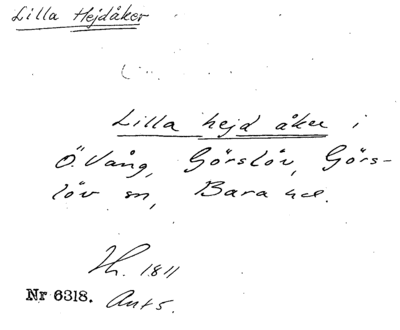 Lilla Hejdåker
Lilla hejd åker i
Ö. Vång, Görslöv, Görs-
löv sn, Bara hd.
H. 1811
Nr 6318. Ant 5.